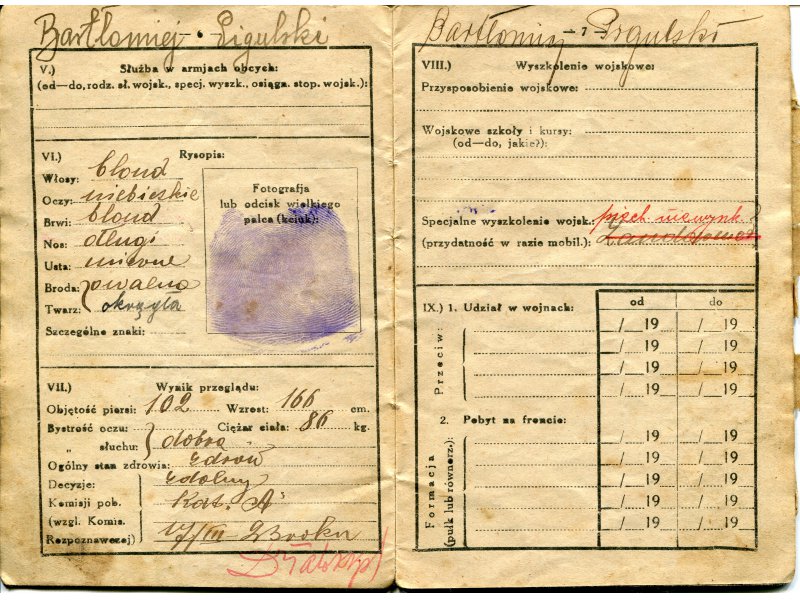 Bartłomiej Pigulski
V.) Służba w armjach obcych:
(od—do, rodz. sł. wojsk., specj. wyszk., osiąga. stop. wojsk.):
VI.) Rysopis:
Włosy: blond
Oczy: niebieskie
Brwi: blond
Nos: długi
Usta: mierne
Broda: owalna
Twarz: okrągła
Szczególne znaki:
Fotografja
lub odcisk wielkiego
palca (kciuk):
VII.) Wynik przeglądu:
Objętość piersi: 102 Wzrost: 166 cm.
Bystrość oczu: Ciężar ciała: 86 kg.
„ słuchu: dobra
Ogólny stan zdrowia: zdrów
Decyzje: zdolny
Komisji pob. Kat. "A"
(wzgl. Komis.
Rozpoznawczej) 17/III
Bartłomiej Pigulski
— 7 —
VIII.) Wyszkolenie wojskowe:
Przysposobienie wojskowe:
Wojskowe szkoły i kursy:
(od—do, jakie?):
Specjalne wyszkolenie wojsk.: piech. niewynk.
(przydatność w razie mobil.):
IX.) 1. Udział w wojnach: od do
Przeciw:
/ 19 / 19
/ 19 / 19
/ 19 / 19
/ 19 / 19
2. Pobyt na froncie:
Formacja
(pułk lub równorz.):
/ 19 / 19
/ 19 / 19
/ 19 / 19
/ 19 / 19
/ 19 / 19